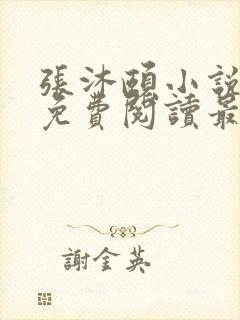 張沐頤小說
免費閱讀最
謝金英